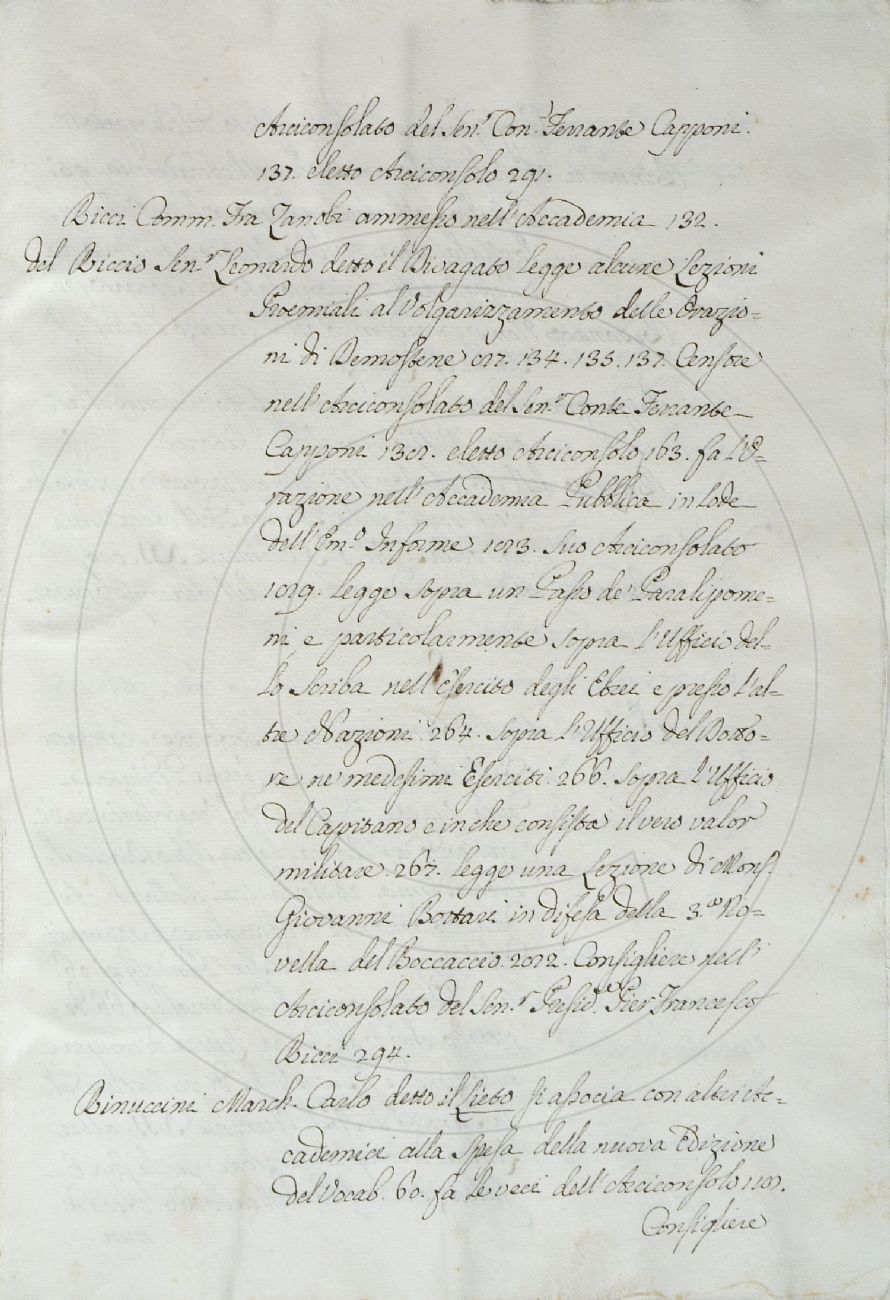 Arciconsolato del Sen.r Con. Ferrante Capponi.
137. eletto Arciconsolo 291.
Ricci Comm. Fra Zanobi ammesso nell'Accademia 132.
del Riccio Sen.r Leonardo detto il Divagato legge alcune Lezioni
Proemiali al Volgarizzamento delle Orazio=
ni di Demostene 127. 134. 135. 137. Censore
nell'Arciconsolato del Sen.e Conte Ferrante
Capponi 137. eletto Arciconsolo 163. fa l'O=
razione nell'Accademia Pubblica in lode
dell'Em.o Informe 173. Suo Arciconsolato
179. legge sopra un Passo de' Paralipome=
ni, e particolarmente sopra l'Ufficio del=
lo Scriba nell'Esercito degli Ebrei e presso l'al=
tre Nazioni 264. sopra l'Ufficio del Dotto=
re ne medesimi Eserciti 266. sopra l'Ufficio
del Capitano e in che consista il vero valor
militare 267. legge una Lezione di Mons.
Giovanni Bottari in difesa della 3.a No=
vella del Boccaccio 272. Consigliere nell'
Arciconsolato del Sen.r Presid.te Pier Francesco
Ricci 294.
Rinuccini March. Carlo detto il Lieto si associa con altri Ac=
cademici alla spesa della nuova Edizione
del Vocab. 60. fa le veci dell'Arciconsolo
Consigliere